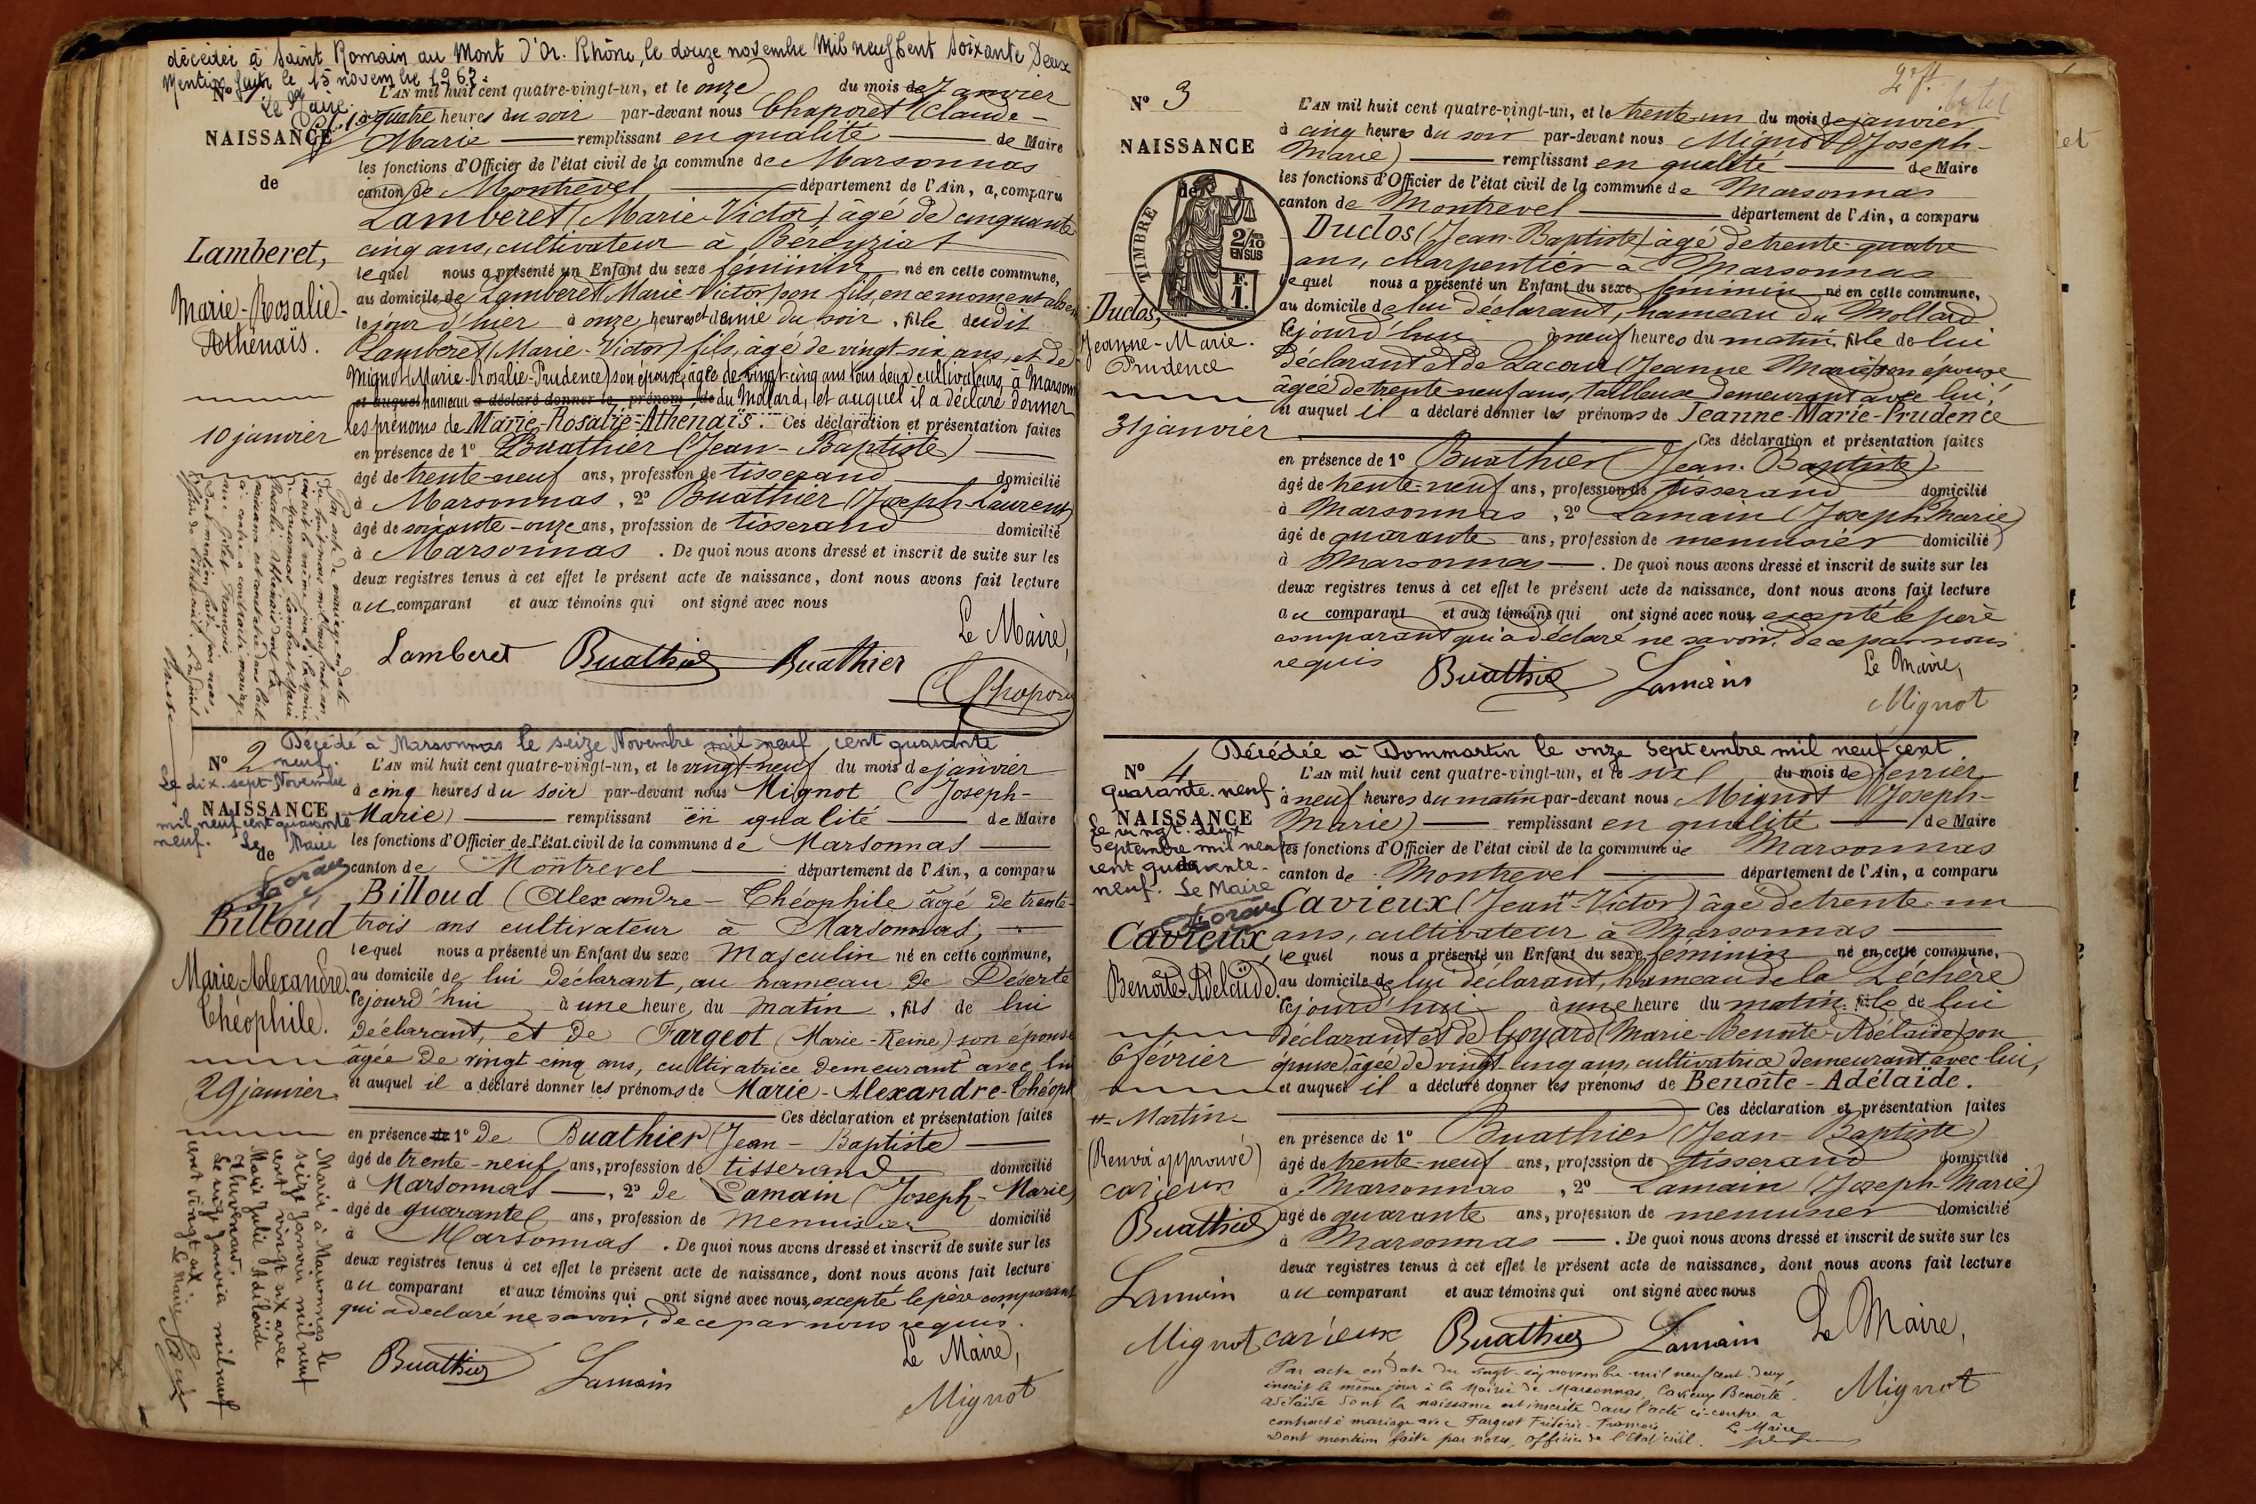 décédée à Saint Romain au Mont D'Or. Rhône, le douze novembre mil neuf cent soixante Deux
Mention faite le 15 novembre 1962.
Le Maire.
N° 1
NAISSANCE
de
Lamberet,
Marie-Rosalie-
Athénaïs.
10 janvier
L'AN mil huit cent quatre-vingt-un, et le onze du mois de Janvier
à quatre heures du soir par-devant nous Chaporet (Claude-
Marie remplissant en qualité de Maire
les fonctions d'Officier de l'état civil de la commune de Marsonnas
canton de Montrevel département de l'Ain, a comparu
Lamberet (Marie-Victor) âgé de cinquante
cinq ans, cultivateur à Béreyziat
lequel nous a présenté un Enfant du sexe féminin né en cette commune,
au domicile de Lamberet (Marie-Victor) son fils, en ce moment absent
le jour d'hier à onze heures et demie du soir, fille dudit
Lamberet (Marie-Victor) fils, âgé de vingt-six ans, et de
Mignot (Marie-Rosalie-Prudence) son épouse, âgée de vingt-cinq ans tous deux cultivateurs, à Marsonnas
et auquel hameau a déclaré donner les prénoms de du Mollard, et auquel il a déclaré donner
les prénoms de Marie-Rosalie-Athénaïs. Ces déclaration et présentation faites
en présence de 1° Buathier (Jean-Baptiste)
âgé de trente-neuf ans, profession de tisserand domicilié
à Marsonnas, 2° Buathier (Joseph-Laurent)
âgé de soixante-onze ans, profession de tisserand domicilié
à Marsonnas. De quoi nous avons dressé et inscrit de suite sur les
deux registres tenus à cet effet le présent acte de naissance, dont nous avons fait lecture
au comparant et aux témoins qui ont signé avec nous
Le Maire,
Lamberet Buathier Buathier
Décédé à Marsonnas le seize Novembre mil neuf cent quarante
neuf.
Le dix-sept Novembre
mil neuf cent quarante
neuf. Le Maire
N° 2
NAISSANCE
de
Billoud
Marie-Alexandre-
Théophile.
29 janvier
L'AN mil huit cent quatre-vingt-un, et le vingt-neuf du mois de janvier
à cinq heures du soir par-devant nous Mignot (Joseph-
Marie) remplissant en qualité de Maire
les fonctions d'Officier de l'état civil de la commune de Marsonnas
canton de Montrevel département de l'Ain, a comparu
Billoud (Alexandre-Théophile âgé de trente-
trois ans cultivateur à Marsonnas,
lequel nous a présenté un Enfant du sexe Masculin né en cette commune,
au domicile de lui déclarant, au hameau de Déserte
cejourd'hui à une heure du matin, fils de lui
déclarant, et de Fargeot (Marie-Reine) son épouse
âgée de vingt-cinq ans, cultivatrice demeurant avec lui
et auquel il a déclaré donner les prénoms de Marie-Alexandre-Théoph
Ces déclaration et présentation faites
en présence de 1° de Buathier (Jean-Baptiste
âgé de trente-neuf ans, profession de tisserand domicilié
à Marsonnas, 2° de Lamain (Joseph-Marie)
âgé de quarante ans, profession de Menuisier domicilié
à Marsonnas. De quoi nous avons dressé et inscrit de suite sur les
deux registres tenus à cet effet le présent acte de naissance, dont nous avons fait lecture
au comparant et aux témoins qui ont signé avec nous, excepté le père comparant
qui a déclaré ne savoir, de ce par nous requis.
Le Maire,
Buathier Lamain
Mignot
Marié à Marsonnas le
seize Janvier mil neuf
cent vingt six avec
Marie Julie Adélaïde
Thévenard.
Le seize Janvier mil neuf
cent vingt six.
Le Maire
N° 3
NAISSANCE
de
TIMBRE
2/10
EN SUS
F.
1.
Duclos,
Jeanne-Marie-
Prudence
31 janvier
L'AN mil huit cent quatre-vingt-un, et le trente-un du mois de janvier
à cinq heures du soir par-devant nous Mignot (Joseph-
Marie) remplissant en qualité de Maire
les fonctions d'Officier de l'état civil de la commune de Marsonnas
canton de Montrevel département de l'Ain, a comparu
Duclos (Jean-Baptiste) âgé de trente-quatre
ans, charpentier à Marsonnas
lequel nous a présenté un Enfant du sexe féminin né en cette commune,
au domicile de lui déclarant, hameau du Mollard
cejourd'hui à neuf heures du matin, fille de lui
déclarant et de Lacour (Jeanne Marie) son épouse
âgée de trente neuf ans, tailleuse demeurant avec lui,
et auquel il a déclaré donner les prénoms de Jeanne-Marie-Prudence
Ces déclaration et présentation faites
en présence de 1° Buathier (Jean-Baptiste)
âgé de trente-neuf ans, profession de tisserand domicilié
à Marsonnas, 2° Lamain (Joseph Marie)
âgé de quarante ans, profession de menuisier domicilié
à Marsonnas. De quoi nous avons dressé et inscrit de suite sur les
deux registres tenus à cet effet le présent acte de naissance, dont nous avons fait lecture
au comparant et aux témoins qui ont signé avec nous, excepté le père
comparant qui a déclaré ne savoir, de ce par nous
requis
Le Maire,
Buathier Lamain
Mignot
Décédée à Dommartin le onze Septembre mil neuf cent
quarante-neuf
Le vingt-deux
Septembre mil neuf
cent quarante-
neuf. Le Maire
N° 4
NAISSANCE
de
Cavieux
Benoîte-Adélaïde.
6 février
Martin
(Renvoi approuvé)
carieux
Buathier
Lamain
Mignot
L'AN mil huit cent quatre-vingt-un, et le six du mois de février
à neuf heures du matin par-devant nous Mignot (Joseph-
Marie) remplissant en qualité de Maire
les fonctions d'Officier de l'état civil de la commune de Marsonnas
canton de Montrevel département de l'Ain, a comparu
Cavieux (Jean-Victor) âgé de trente-un
ans, cultivateur à Marsonnas
lequel nous a présenté un Enfant du sexe féminin né en cette commune,
au domicile de lui déclarant, hameau de la Léchère
cejourd'hui à une heure du matin, fille de lui
déclarant et de Goyard (Marie-Benoite-Adélaïde) son
épouse, âgée de vingt-cinq ans, cultivatrice demeurant avec lui,
et auquel il a déclaré donner les prénoms de Benoîte-Adélaïde.
Ces déclaration et présentation faites
en présence de 1° Buathier (Jean-Baptiste)
âgé de trente-neuf ans, profession de tisserand domicilié
à Marsonnas, 2° Lamain (Joseph-Marie)
âgé de quarante ans, profession de menuisier domicilié
à Marsonnas. De quoi nous avons dressé et inscrit de suite sur les
deux registres tenus à cet effet le présent acte de naissance, dont nous avons fait lecture
au comparant et aux témoins qui ont signé avec nous
Le Maire,
carieux Buathier Lamain
Mignot
Par acte en date du vingt-six novembre mil neuf cent deux,
inscrit le même jour à la Mairie de Marsonnas, Cavieux Benoîte
Adélaïde dont la naissance est inscrite dans l'acte ci-contre a
contracté mariage avec Fargeot Frédéric-François
Dont mention faite par nous, officier de l'état civil.
Le Maire